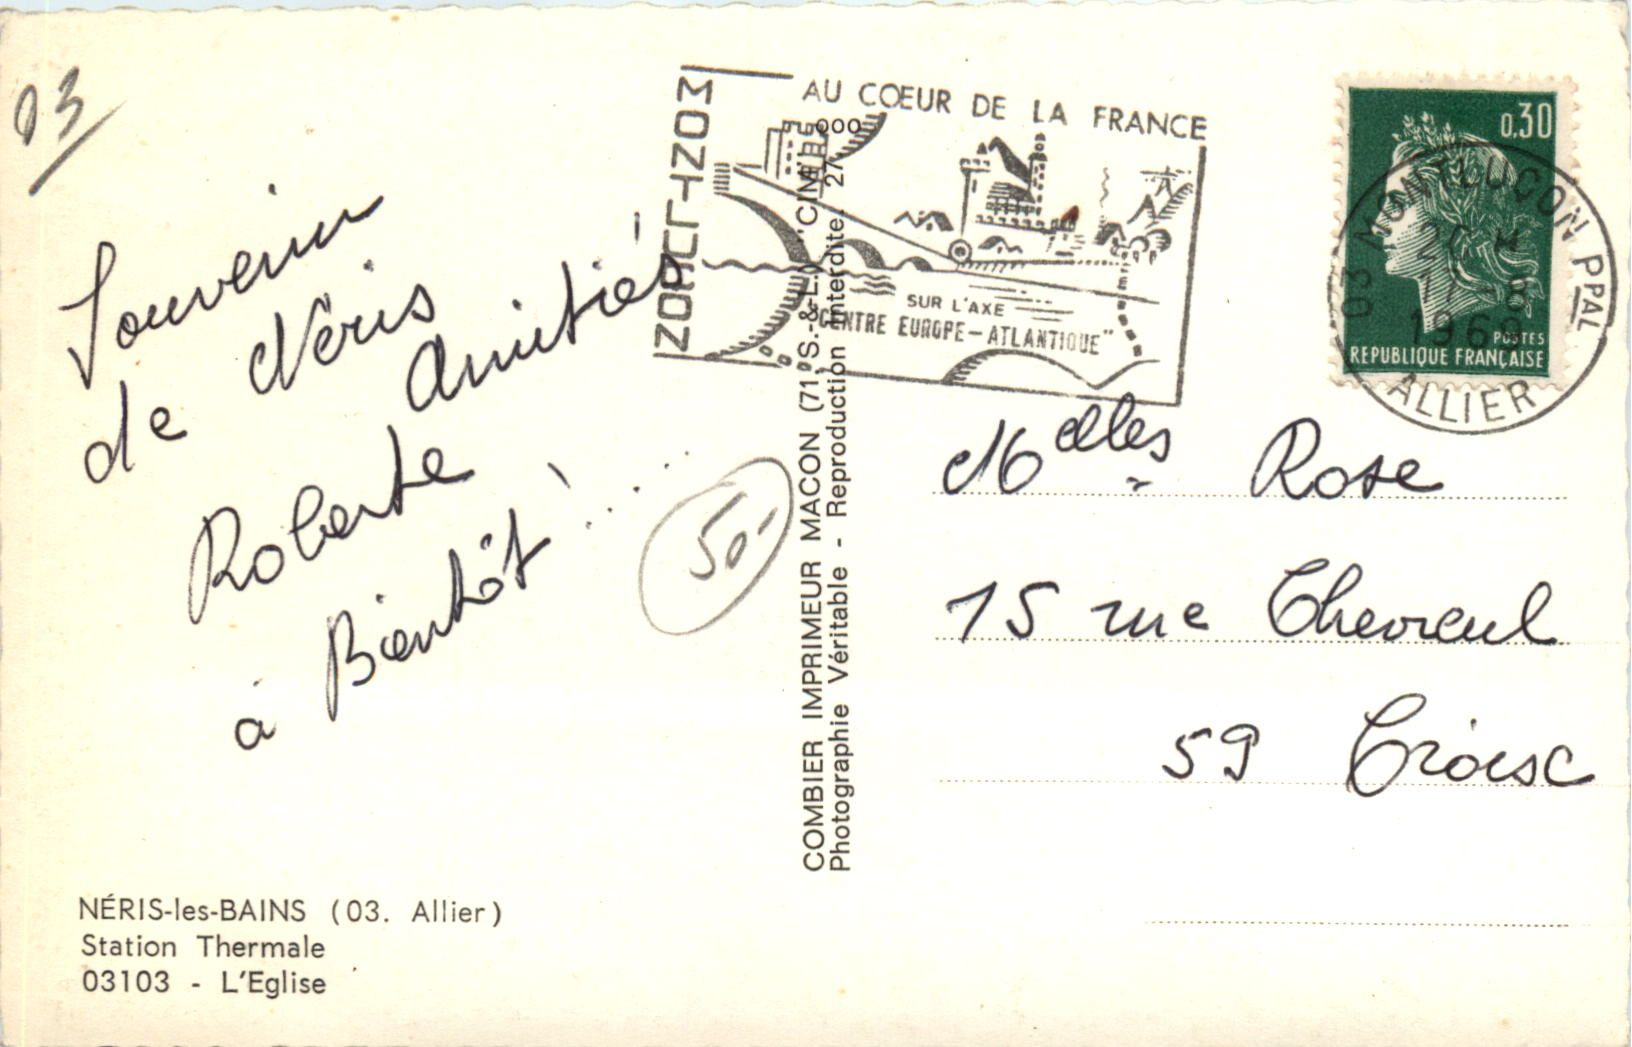 03
Souvenir
de Néris
Amitiés
Roberte
à Bientôt !...
50-
NÉRIS-les-BAINS (03. Allier)
Station Thermale
03103 - L'Eglise
COMBIER IMPRIMEUR MACON (71 S.-&-L.) "CIM"
Photographie Véritable - Reproduction Interdite. 27
MONTLUÇON
AU COEUR DE LA FRANCE
SUR L'AXE
"CENTRE EUROPE-ATLANTIQUE"
0,30
POSTES
REPUBLIQUE FRANÇAISE
03 MONTLUÇON PPAL
17-8
ALLIER
Melles Rose
15 rue Chevreul
59 Croisc